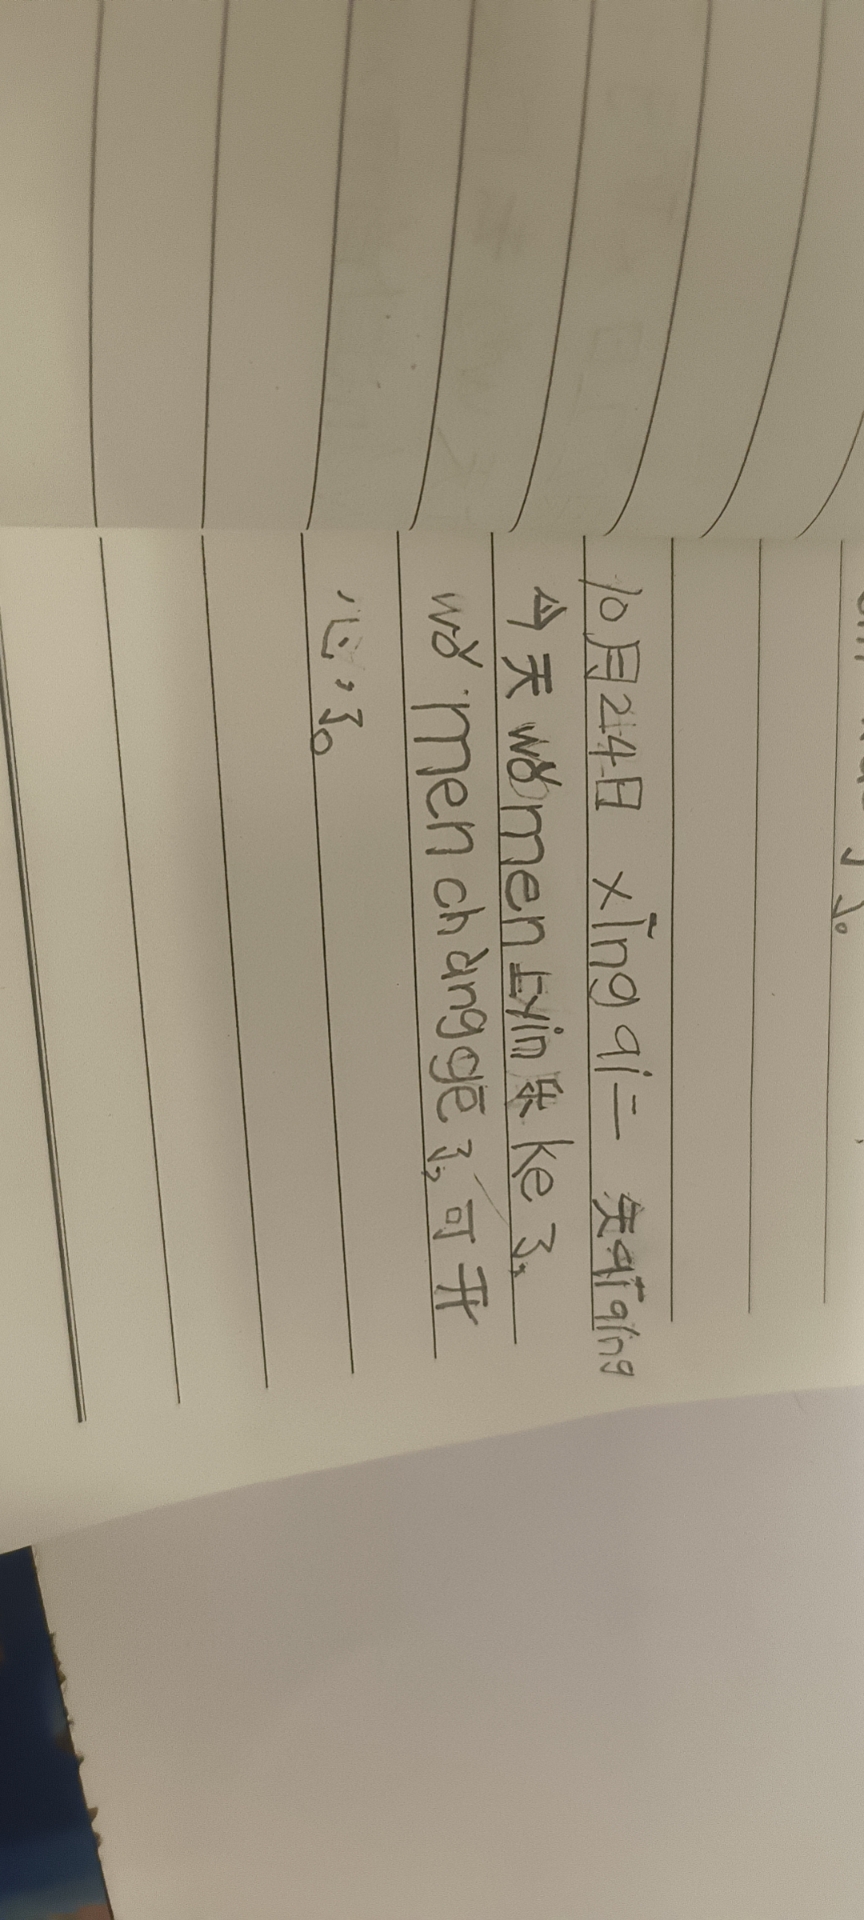 10月24日 xīng qī二 天qīqíng
今天wǒmen上yīn乐ke了,
wǒ men chàng gē了,可开
心了。